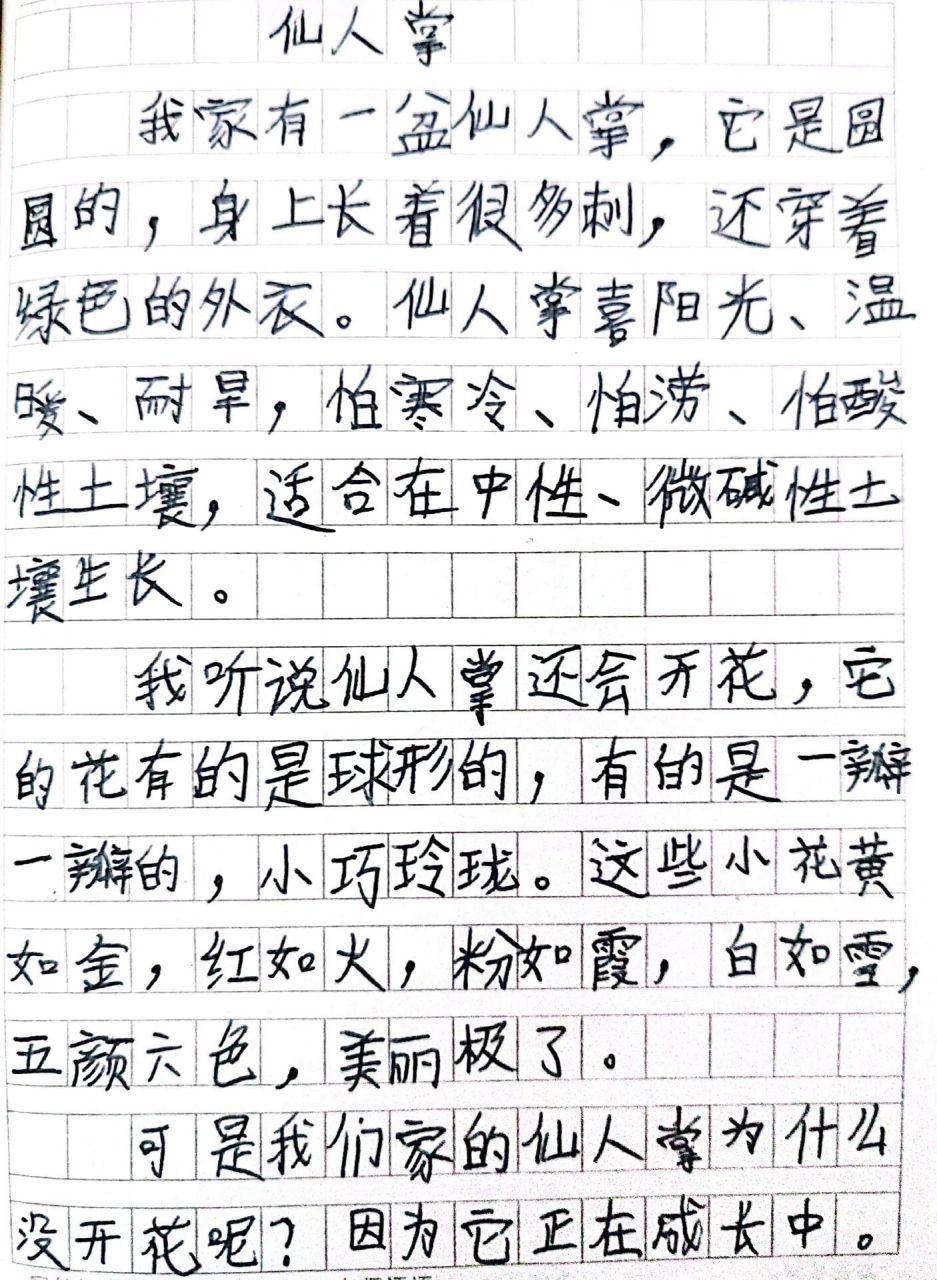 仙人掌
我家有一盆仙人掌，它是圆
圆的，身上长着很多刺，还穿着
绿色的外衣。仙人掌喜阳光、温
暖、耐旱，怕寒冷、怕涝、怕酸
性土壤，适合在中性、微碱性土
壤生长。
我听说仙人掌还会开花，它
的花有的是球形的，有的是一瓣
一瓣的，小巧玲珑。这些小花黄
如金，红如火，粉如霞，白如雪，
五颜六色，美丽极了。
可是我们家的仙人掌为什么
没开花呢？因为它正在成长中。